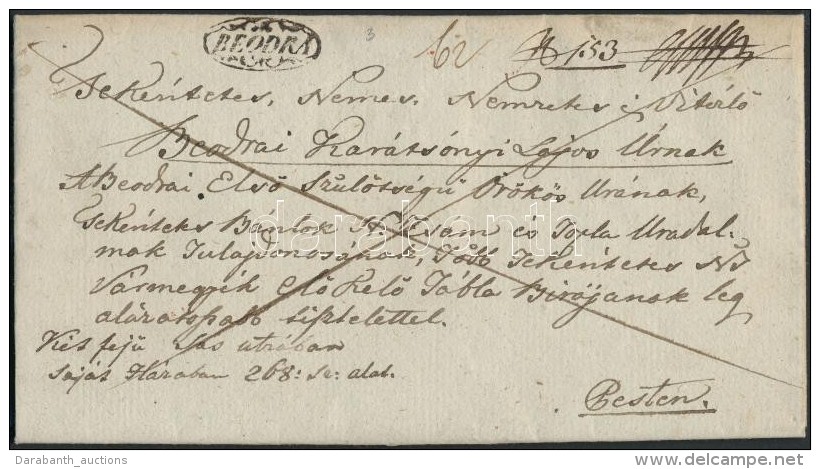 BEODRA
3
62
N 153
Tekéntetes, Nemes, Nemzetes, Vitézlő
Beodrai Karátsonyi Lajos Úrnak
A Beodrai Első Szülöttségű Örökös Urának,
Tekéntetes Banlok St. és Torda Uradal-
mak Tulajdonosának, Több Tekéntetes Ns
Vármegyék Elő Kelő Tábla Birájanak leg
alázatossabb tisztelettel.
Két fejű Sas utzában
saját Házában 268: sz: alat.
Pesten.
darabanth
Darabanth_auctions
www.delcampe.net